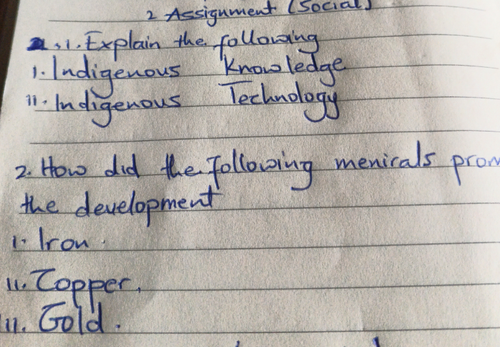 2 Assignment (Social)
1. Explain the following
i. Indigenous Knowledge
ii. Indigenous Technology
2. How did the following menicals prom
the development
i. Iron.
ii. Copper.
ii. Gold.